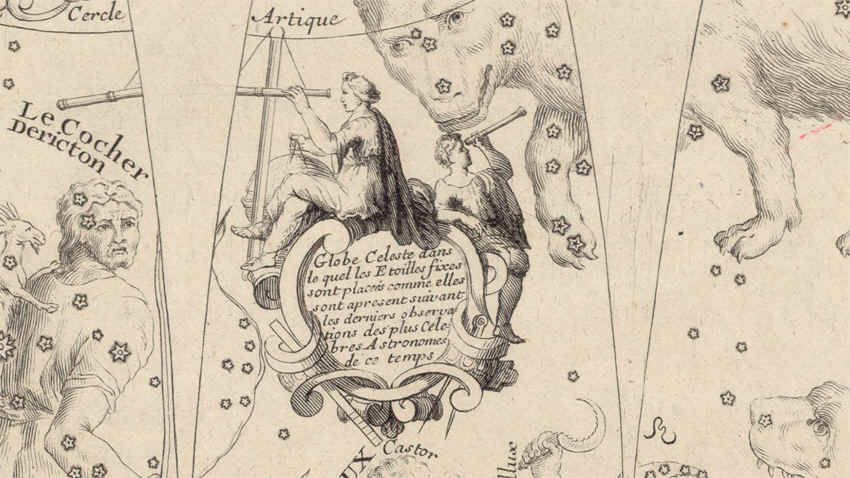 Cercle
Artique
Le Cocher
Dericton
Globe Celeste dans
le quel les Etoilles fixes
sont placeés comme elles
sont apresent suivant
les derniers observa
tions des plus Cele-
bres Astronomes
de ce temps
UX
Castor
llux